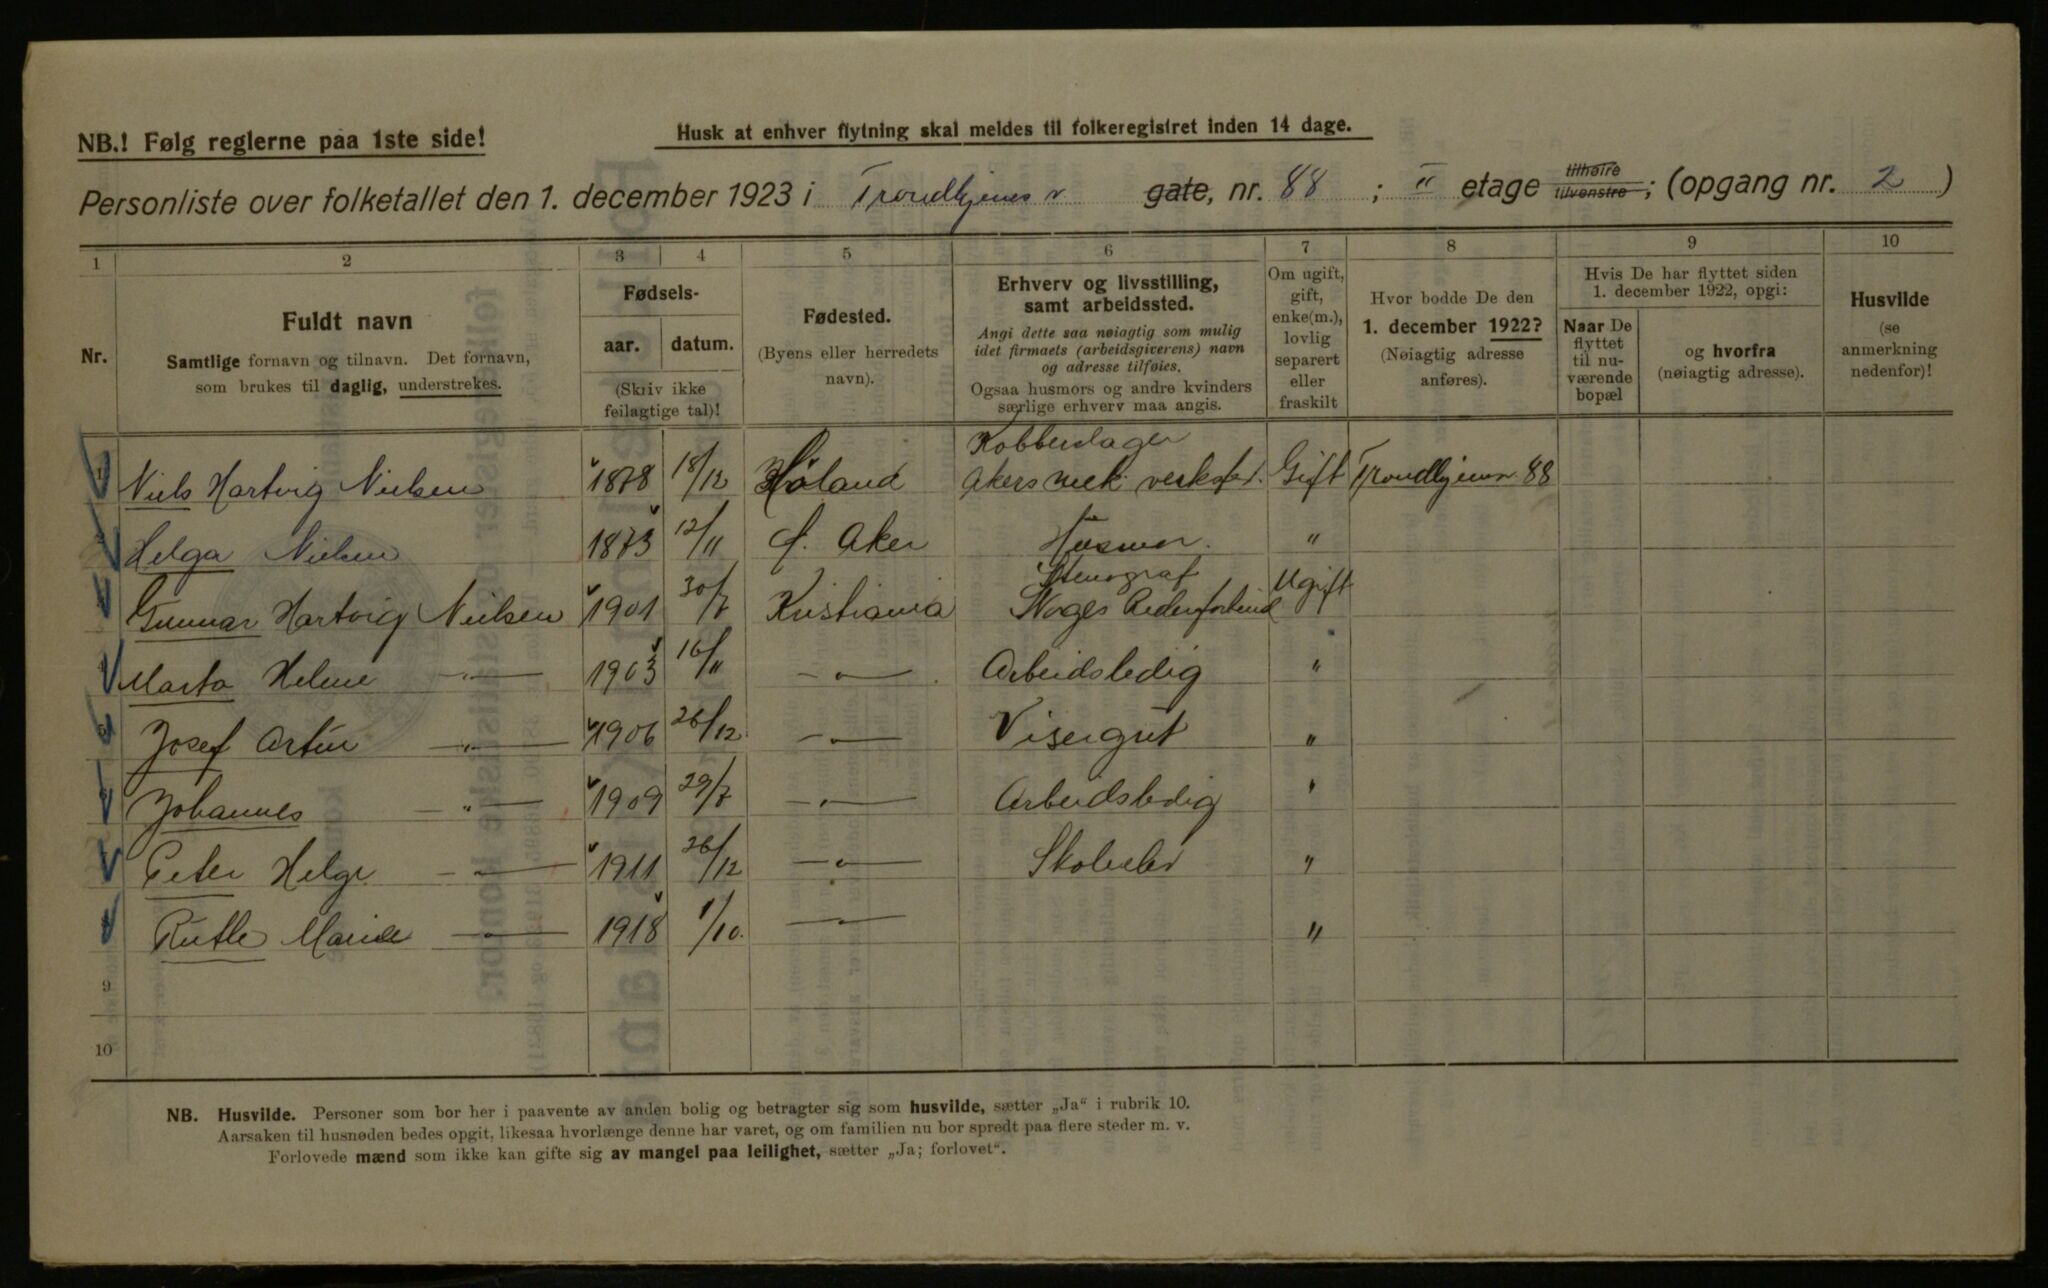 NB.! Følg reglerne paa 1ste side!
Husk at enhver flytning skal meldes til folkeregistret inden 14 dage.
Personliste over folketallet den 1. december 1923 i Trondhjems v gate, nr. 88 ; II etage tilhøire tilvenstre ; (opgang nr. 2 )
1 2 3 4 5 6 7 8 9 10
Nr.
Fuldt navn
Samtlige fornavn og tilnavn. Det fornavn,
som brukes til daglig, understrekes.
Fødsels-
aar. datum.
(Skriv ikke
feilagtige tal)!
Fødested.
(Byens eller herredets
navn).
Erhverv og livsstilling,
samt arbeidssted.
Angi dette saa nøiagtig som mulig
idet firmaets (arbeidsgiverens) navn
og adresse tilføies.
Ogsaa husmors og andre kvinders
særlige erhverv maa angis.
Om ugift,
gift,
enke(m.),
lovlig
separert
eller
fraskilt
Hvor bodde De den
1. december 1922?
(Nøiagtig adresse
anføres).
Hvis De har flyttet siden
1. december 1922, opgi:
Naar De
flyttet
til nu-
værende
bopæl
og hvorfra
(nøiagtig adresse).
Husvilde
(se
anmerkning
nedenfor)!
Kobberslager
1 Niels Hartvig Nielsen 1878 18/12 Høland Akers mek. verksted. Gift Trondhjemsv 88
2 Helga Nielsen 1873 12/11 Aker Husmor. "
Stenograf
3 Gunnar Hartvig Nielsen 1901 30/7 Kristiania Norges Rederforbund Ugift
4 Marta Helene —"— 1903 16/11 —"— Arbeidsledig "
5 Josef Artur —"— 1906 26/12 —"— Visergut "
6 Johannes —"— 1909 29/7 —"— Arbeidsledig "
7 Peter Helge —"— 1911 26/12 —"— Skoleelev "
8 Ruth Marie —"— 1918 1/10. —"— "
9
10
NB. Husvilde. Personer som bor her i paavente av anden bolig og betragter sig som husvilde, sætter „Ja“ i rubrik 10.
Aarsaken til husnøden bedes opgit, likesaa hvorlænge denne har varet, og om familien nu bor spredt paa flere steder m. v.
Forlovede mænd som ikke kan gifte sig av mangel paa leilighet, sætter „Ja; forlovet“.